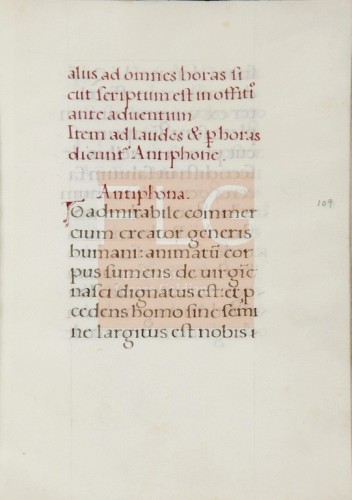 alus ad omnes horas si
cut scriptum est in offiti⁹
ante aduentum
Item ad laudes & ꝑ horas
dicunt᷑ Antiphone.
Antiphona.
O admirabile commer
cium creator generis
humani: animatū cor
pus sumens de uirgīe
nasci dignatus est: et ꝓ
cedens homo sine semi
ne largitus est nobis ı
109
FLG